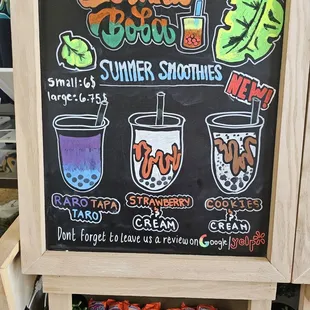 Boba
SUMMER SMOOTHIES
NEW!
small: 6$
large: 6.75$
RARO TAPA
TARO
STRAWBERRY
&
CREAM
COOKIES
&
CREAM
Dont forget to leave us a review on Google/yelp